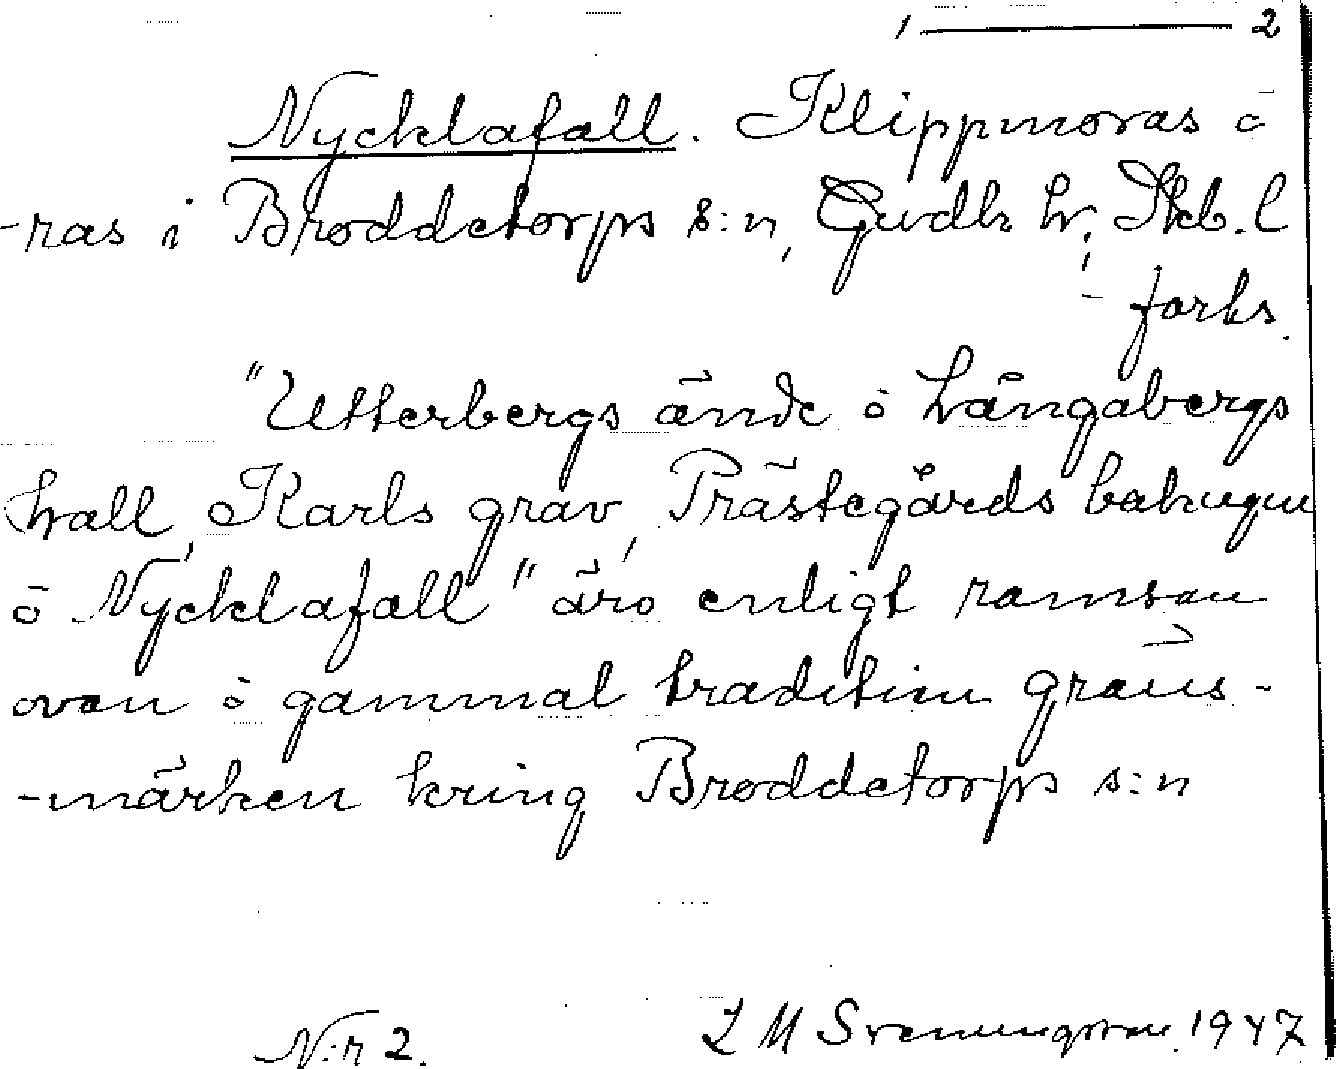 1 ——— 2
Nycklafall. Klippmoras å
-ras i Broddetorps s:n, Gudh. hr, Skb. l
- forts.
"Utterbergs ände å Långabergs
hall, Karls grav, Prästegårds bakugn
å Nycklafall" äro enligt ramsan
ovan å gammal tradition gräns-
-märken kring Broddetorps s:n
N:r 2. L M Svenungsson. 1947